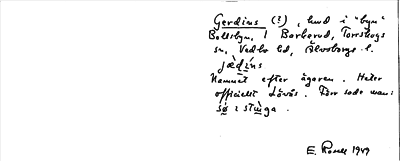 Gerdins (?), lund i "byn"
Bollsbyn, i Borkerud, Torrskogs
sn, Vedbo hd, Älvsborgs l.
jædins
Namnet efter ägaren. Heter
officiellt Lövås. Förr sade man:
sø i stuga.
E. Rosell 1949